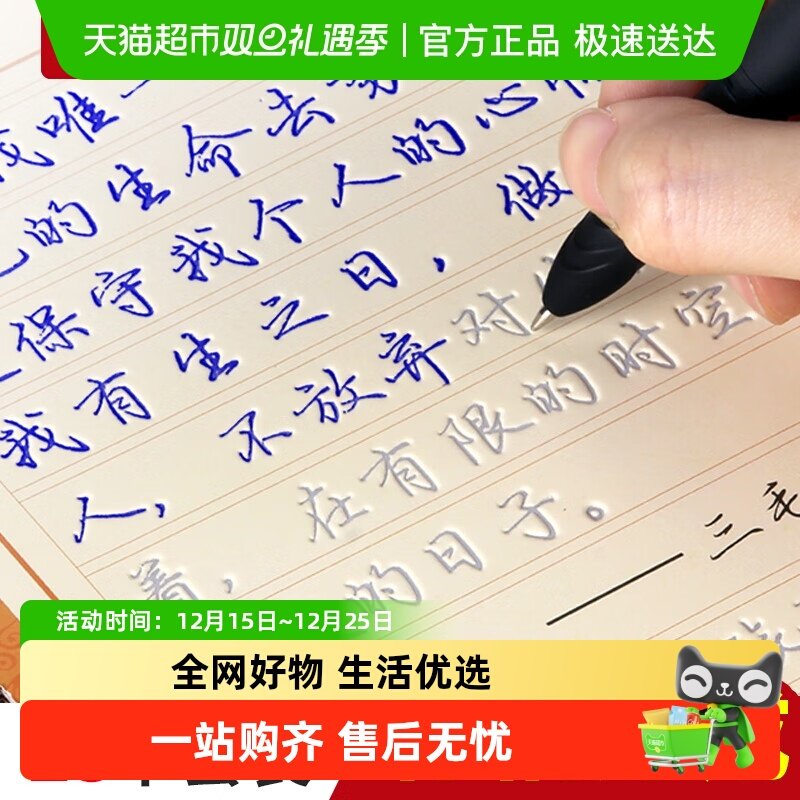 天猫超市双旦礼遇季 官方正品 极速送达
我唯一
的生命去
保守我个人的心情
我有生之日，做
不放弃对
人，在有限的时空
着，的日子。
——三毛
活动时间：12月15日~12月25日
全网好物 生活优选
一站购齐 售后无忧
天猫超市